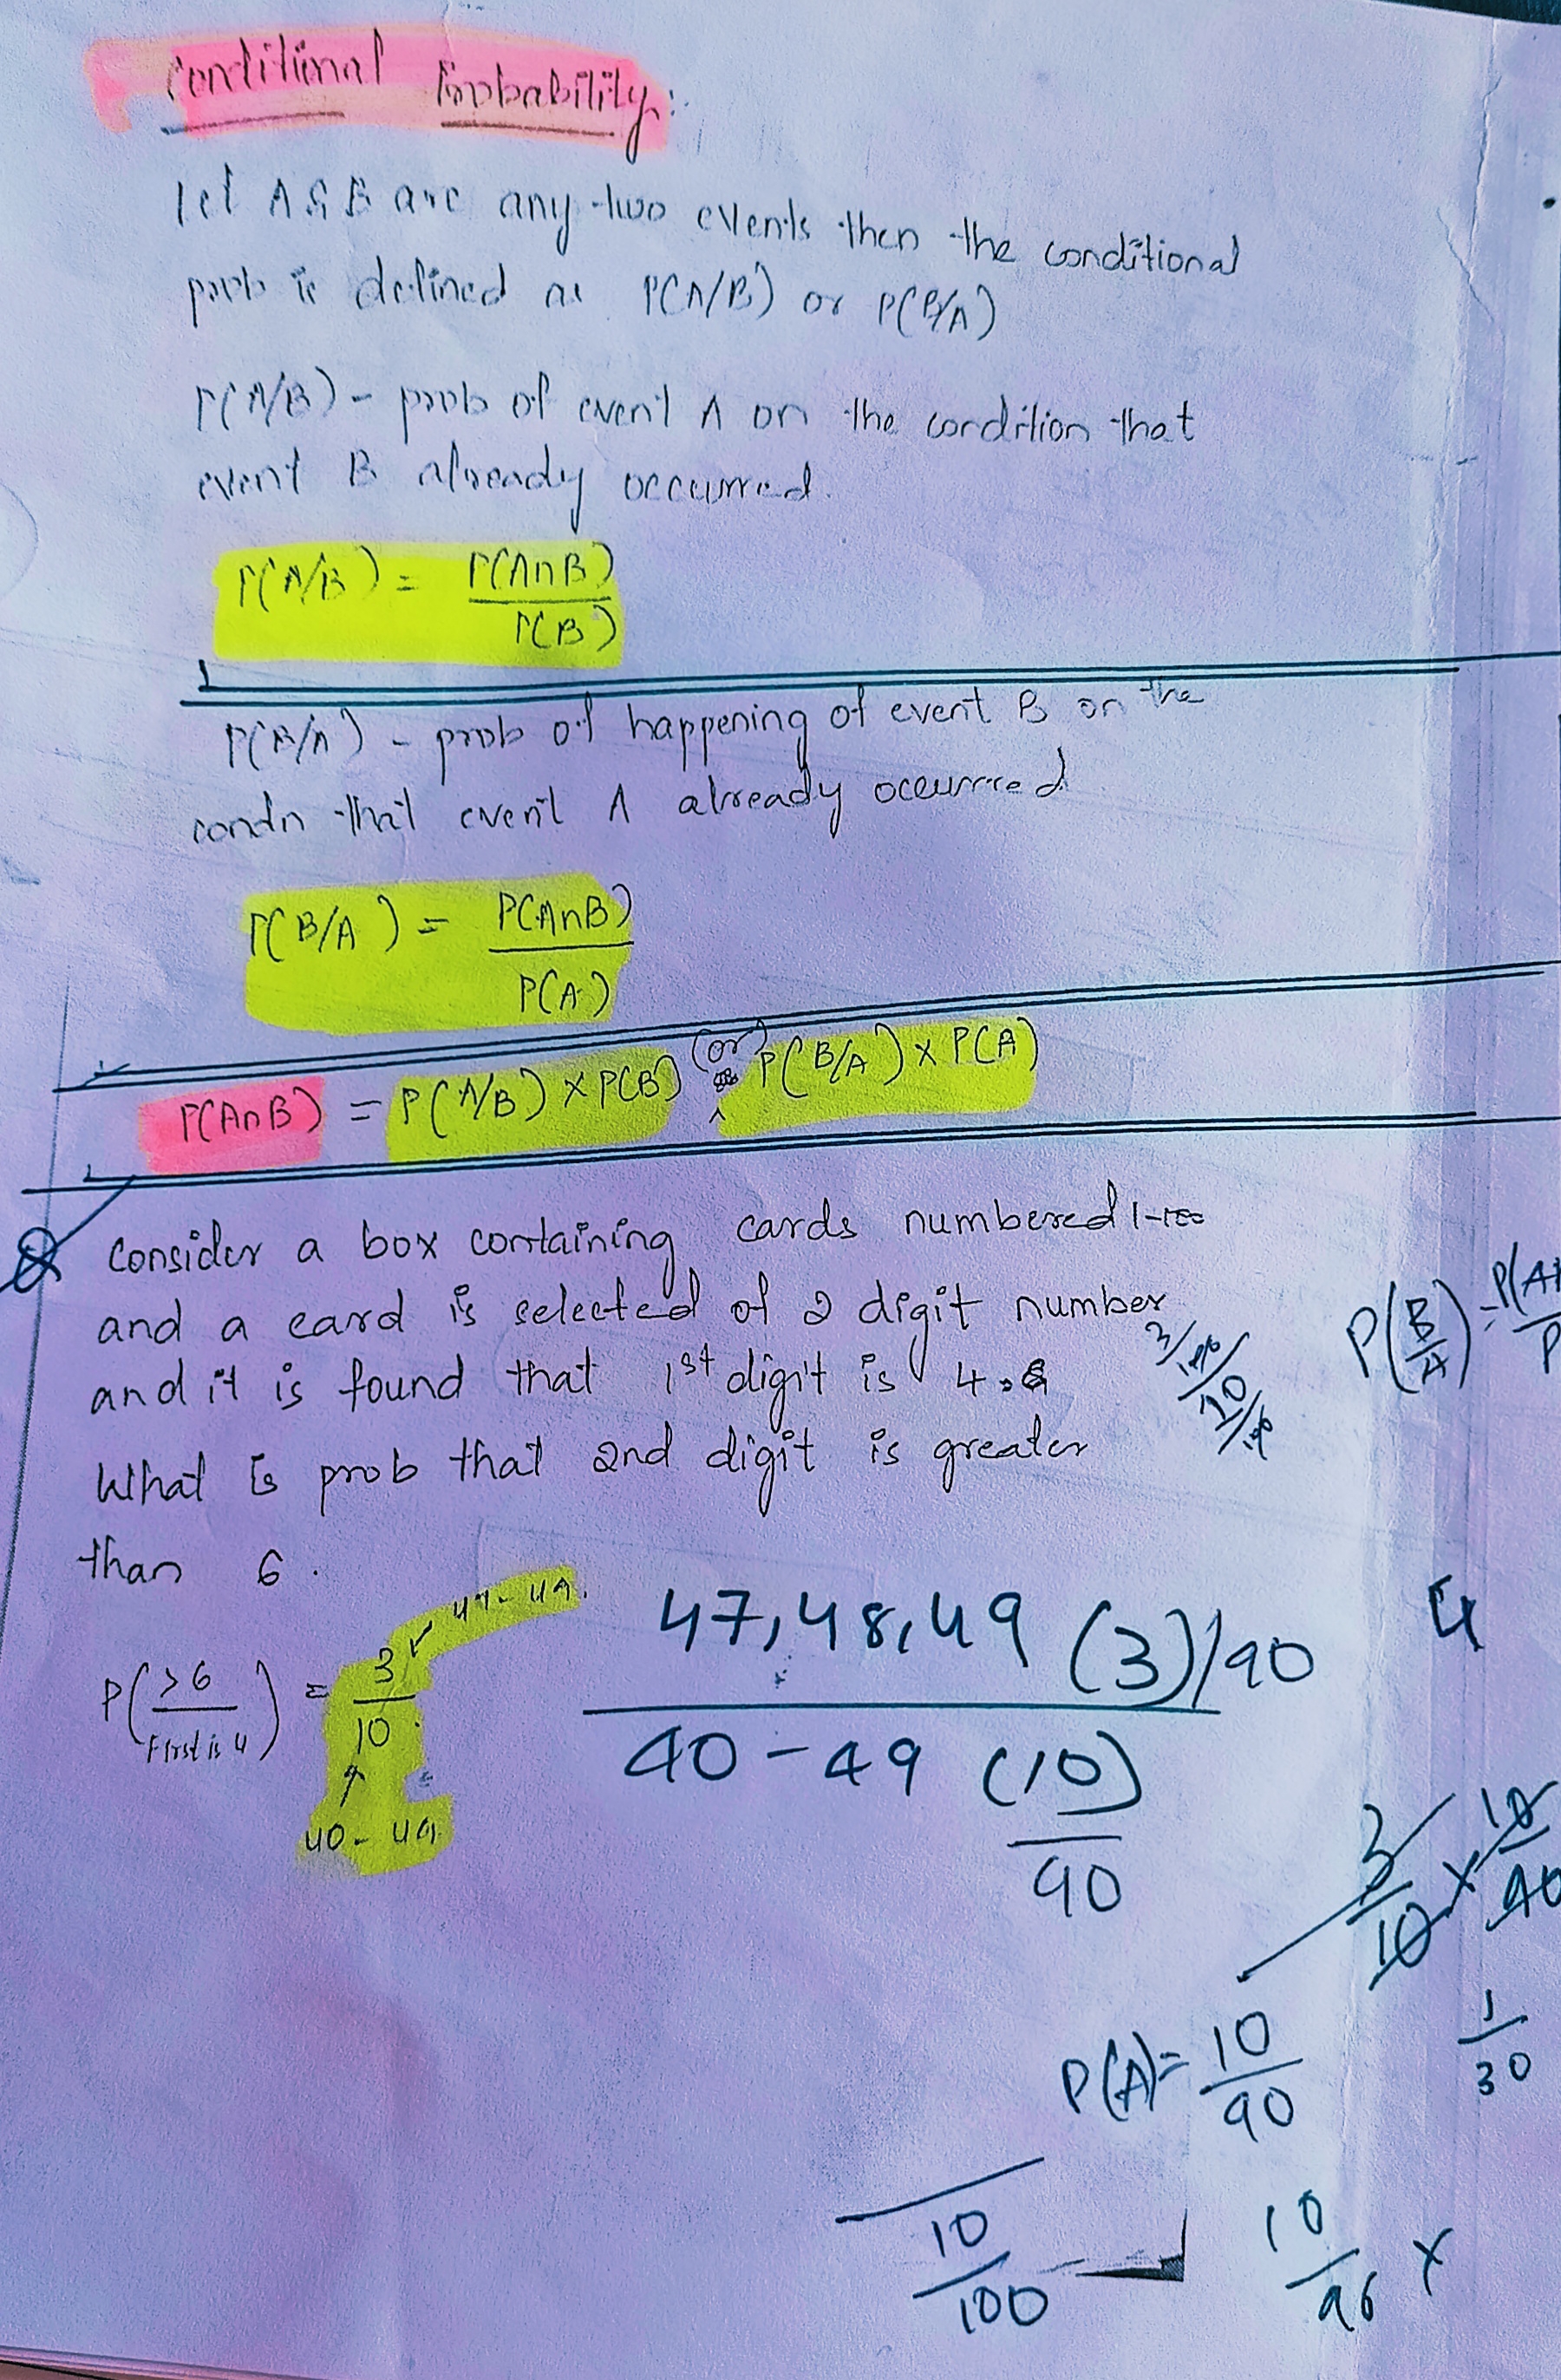 Conditional Probability:
let A & B are any two events then the conditional
prob is defined as P(A/B) or P(B/A)
P(A/B) - prob of event A on the condition that
event B already occurred.
P(A/B) = P(A∩B)
P(B)
P(B/A) - prob of happening of event B on the
condn that event A already occurred
P(B/A) = P(A∩B)
P(A)
P(A∩B) = P(A/B) × P(B) (or) P(B/A) × P(A)
Q Consider a box containing cards numbered 1-100
and a card is selected of 2 digit number
and it is found that 1st digit is 4.
What is prob that 2nd digit is greater
than 6.
3/100
10/100
P(B/A) = P(A
P
47-49.
P(>6 / First is 4) = 3/10
40-49
47,48,49 (3)/90
40-49 (10)
90
4
3/10 × 10/90
1/30
P(A) = 10/90
10/100
10/96 ×